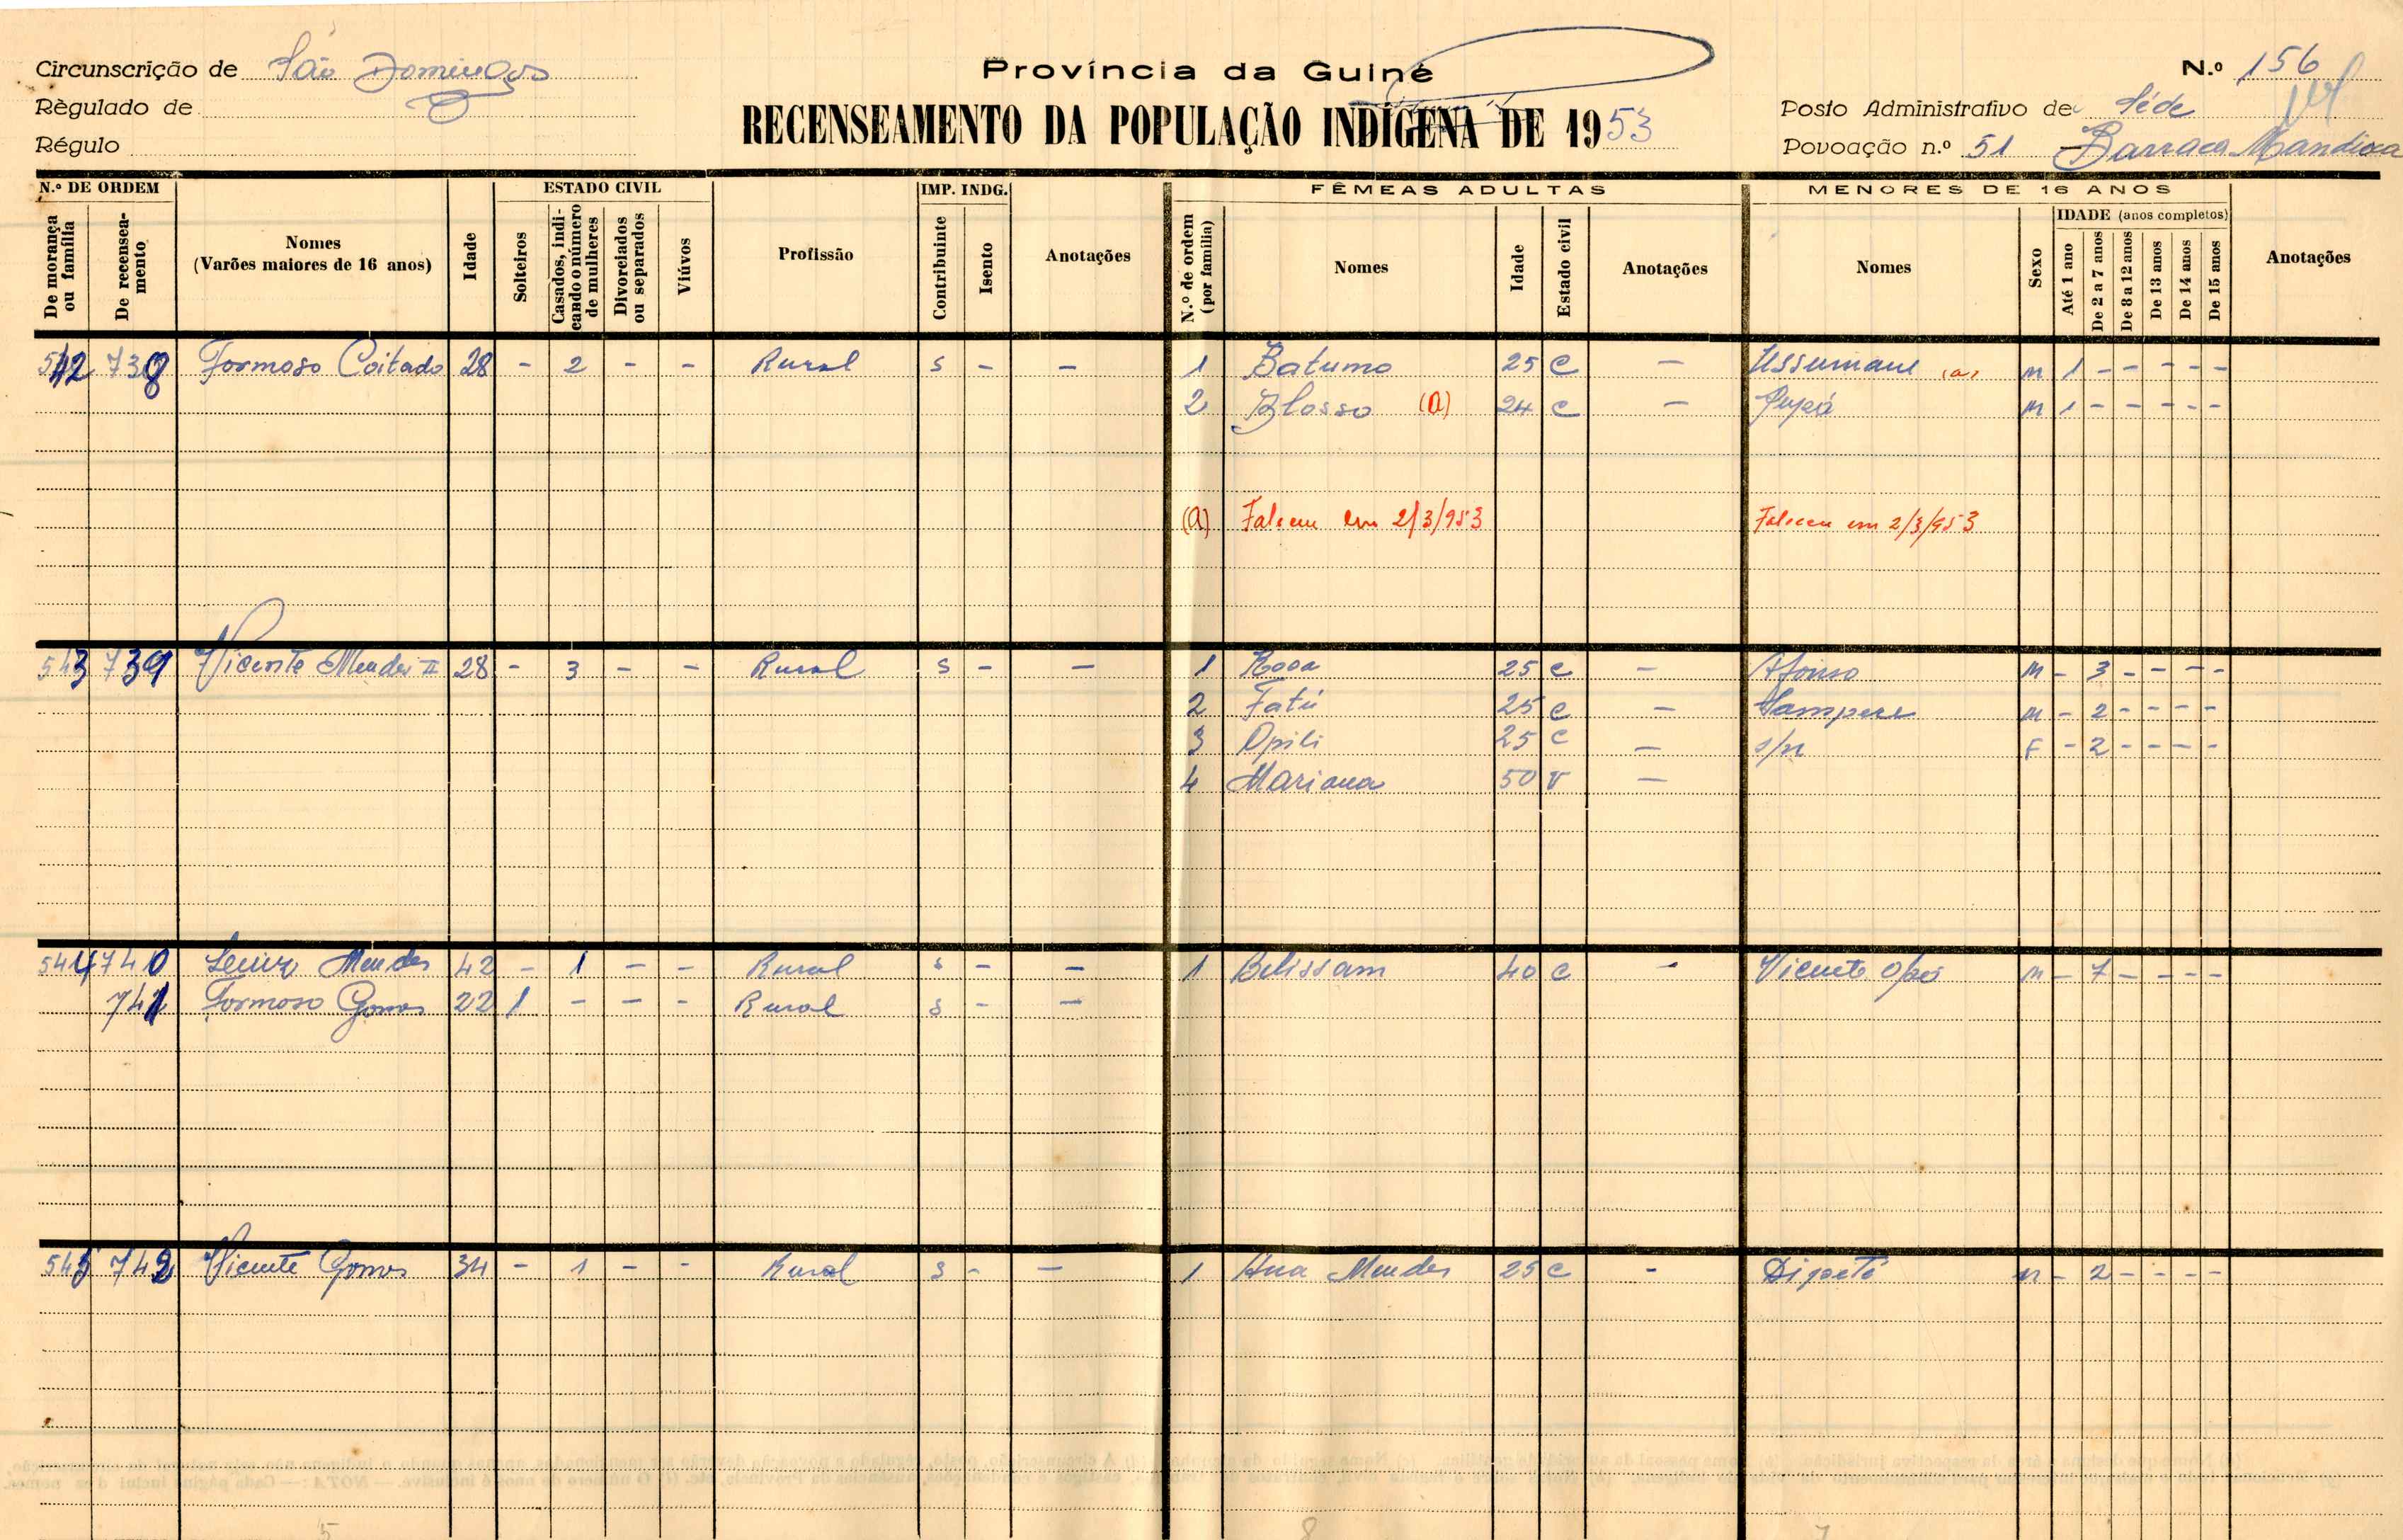 Circunscrição de São Domingos
Règulado de
Régulo
Província da Guiné
RECENSEAMENTO DA POPULAÇÃO INDÍGENA DE 1953
N.º 156
Posto Administrativo de Séde
Povoação n.º 51 Barraca Mandioca
N.º DE ORDEM
De morança ou família
De recenseamento
Nomes
(Varões maiores de 16 anos)
Idade
ESTADO CIVIL
Solteiros
Casados, indicando o número de mulheres
Divorciados ou separados
Viúvos
Profissão
IMP. INDG.
Contribuinte
Isento
Anotações
FÊMEAS ADULTAS
N.º de ordem (por família)
Nomes
Idade
Estado civil
Anotações
MENORES DE 16 ANOS
Nomes
Sexo
IDADE (anos completos)
Até 1 ano
De 2 a 7 anos
De 8 a 12 anos
De 13 anos
De 14 anos
De 15 anos
Anotações
542 738 Formoso Coitado 28 - 2 - - Rural s - - 1 Batumo 25 C - Ussumane (a) m 1 - - - - -
2 Blosso (a) 24 c - m 1 - - - - -
(a) Faleceu em 2/3/953 Faleceu em 2/3/953
543 739 Vicente Mendes II 28 - 3 - - Rural s - - 1 Rosa 25 c - Afonso m - 3 - - - -
2 Fatú 25 c - Sampere m - 2 - - - -
3 Opili 25 c - s/n F - 2 - - - -
4 Mariana 50 v -
544 740 Mendes 42 - 1 - - Rural s - - 1 Belissam 40 c - Vicente m - 7 - - - -
741 Formoso Gomes 22 1 - - - Rural s - -
545 742 Vicente Gomes 34 - 1 - - Rural s - - 1 Ana Mendes 25 c - m - 2 - - - -